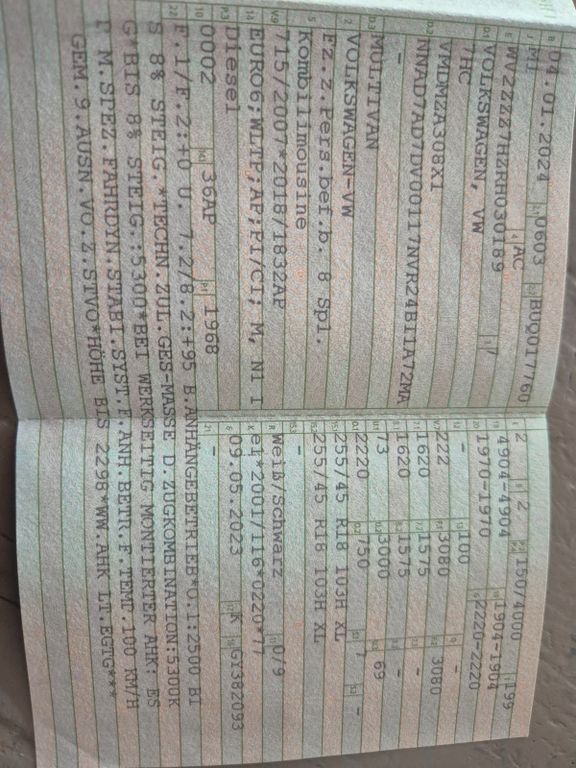 04.01.2024 0603 BUQ017760
M1 AC
WV2ZZZ7HZKH030189 7
VOLKSWAGEN, VW
7HC
VMDMZA308X1
NNAD7AD7DV00117NVR24B11A72MA
-
MULTIVAN
VOLKSWAGEN-VW
Fz.z.Pers.bef.b. 8 Spl.
Kombilimousine
715/2007*2018/1832AP
EURO6;WLTP;AP;PI/CI; M, N1 I
Diesel
0002 36AP 1968
2 2 150/4000 199
4904-4904 1904-1904
1970-1970 2220-2220
- 100 -
2222 3080 3080
1620 1575 -
1620 1575 -
73 3000 69
2220 750 7 -
255/45 R18 103H XL
255/45 R18 103H XL
-
weiß/Schwarz 0/9
e1*2001/116*0220*77
09.05.2023 K GY382093
-
F.1/F.2:+0 U. 7.2/8.2:+95 B.ANHÄNGEBETRIEB*O.1:2500 BI
S 8% STEIG.*TECHN.ZUL.GES-MASSE D.ZUGKOMBINATION:5300K
G*BIS 8% STEIG.:5300*BEI WERKSEITIG MONTIERTER AHK: ES
P M.SPEZ.FAHRDYN.STABI.SYST.F.ANH.BETR.F.TEMP.100 KM/H
GEM.9.AUSN.VO.Z.STVO*HÖHE BIS 2298*WW.AHK LT.EGTG***